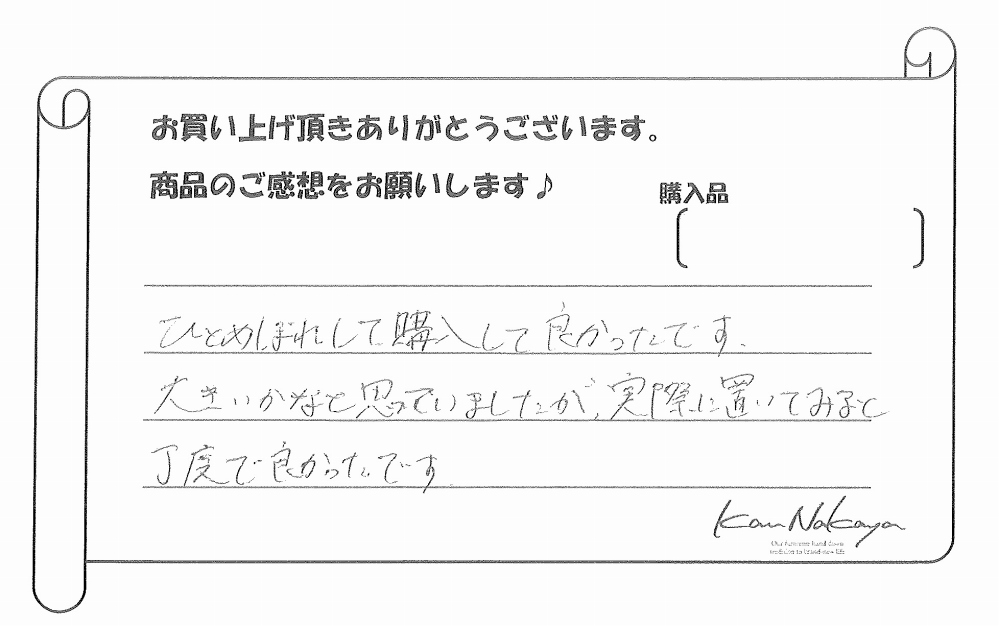 お買い上げ頂きありがとうございます。
商品のご感想をお願いします♪
購入品
ひとめぼれして購入して良かったです.
大きいかなと思っていましたが、実際に置いてみると
丁度で良かったです
Kan Nakaya